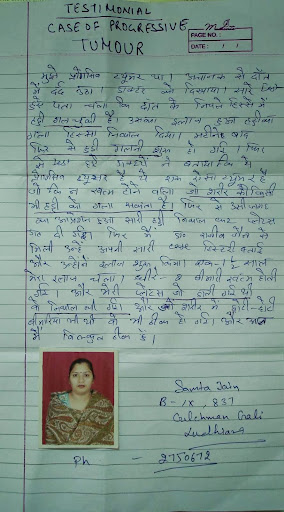 TESTIMONIAL
CASE OF PROGRESSIVE
TUMOUR
PAGE NO.:
DATE: / /
मुझे प्रोग्रेसिव ट्यूमर था। अचानक से दाँत
में दर्द उठा। डाक्टर को दिखाया।
पता चला कि दाँत के निचले हिस्से में
हड्डी गल चुकी है। उसका इलाज हुआ हड्डी का
गला हिस्सा निकाल दिया।
फिर से हड्डी गलनी शुरू हो गई। फिर
से ने बताया कि ये
प्रोग्रेसिव ट्यूमर है। ये एक ऐसा ट्यूमर है
जो कि न खत्म होने वाला जो शरीर की किसी
भी हड्डी को गला सकता है। फिर से
का आप्रेशन हुआ सारी हड्डी निकाल कर प्लेट्स
डाल दी गई। फिर मैं डा०
मिली उन्हें अपनी सारी case हिस्टरी बताई
और उन्होंने इलाज शुरू किया। साल
मेरा इलाज चला। धीरे-२ बीमारी खत्म होती
गई और मेरी प्लेट्स जो डाली गई थी
वो निकाल ली गई। और शरीर में छोटी-छोटी
बीमारियां जो थी वो भी ठीक हो गई। और आज
मैं बिल्कुल ठीक हूं।
Samta Jain
B-IX, 837
Gulchman Gali
Ludhiana
Ph - 2750672